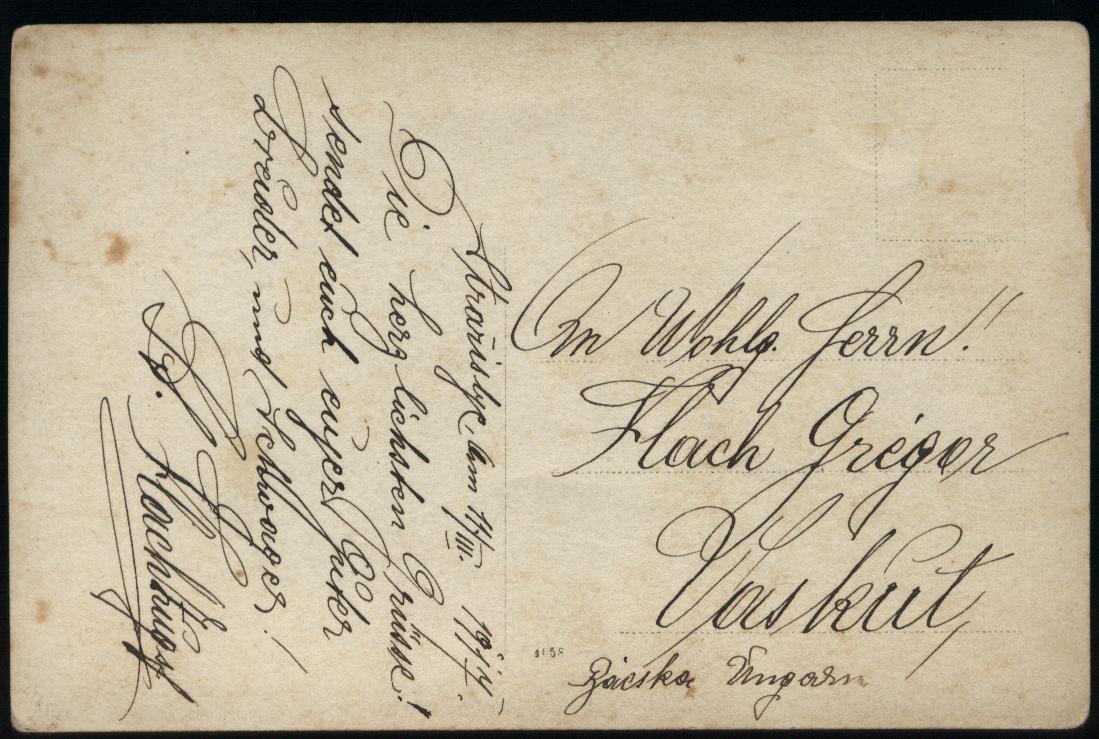 am 17/III. 1914.
Die herzlichsten Grüsse!
sendet euch euyer Guter
Bruder, und Schwager!
An Wohlg. Herrn!!
Flach Gregor
Vaskút,
Bácska Ungarn